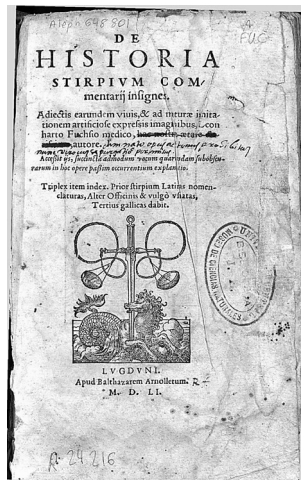 Aleph 648 801
FUG
DE
HISTORIA
STIRPIVM COM/
mentarij insignes.
Adiectis earundem viuis, & ad naturæ imita-
tionem artificiose expressis imaginibus, Leon
harto Fuchsio medico,
autore.
Accessit ijs, succincta admodum vocum quarundam subobscu-
rarum in hoc opere passim occurrentium explanatio.
Triplex item index. Prior stirpium Latinas nomen-
claturas, Alter Officinis & vulgò vsitatas,
Tertius gallicas dabit.
LVGDVNI.
Apud Balthazarem Arnolletum.
M. D. LI.
R. 24.216